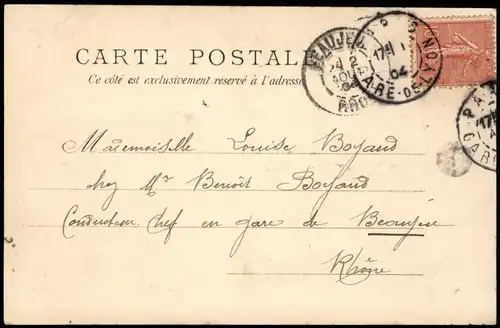 CARTE POSTALE
Ce côté est exclusivement réservé à l'adresse
BEAUJEU
2
AOUT
04
RHONE
PARIS
17
1
04
GARE DE LYON
PA
17
GARE
Mademoiselle Louise Boyaud
chez Mr Benoit Boyaud
Conducteur Chef en gare de Beaujeu
Rhône